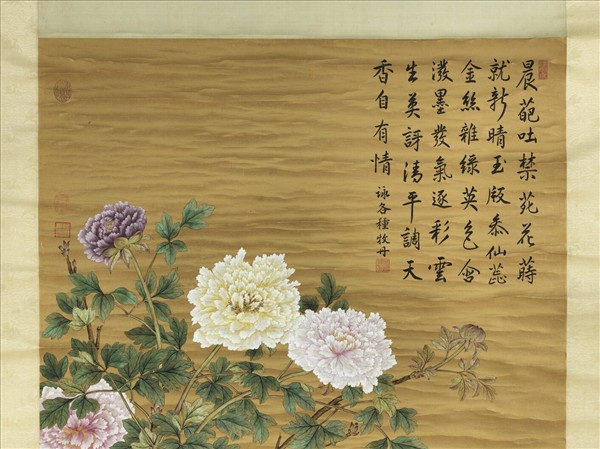 晨葩吐禁苑花蒔
就新晴玉版叅仙蕊
金絲雜綠英色含
潑墨發氣逐彩雲
生莫訝清平調天
香自有情
詠各種牡丹